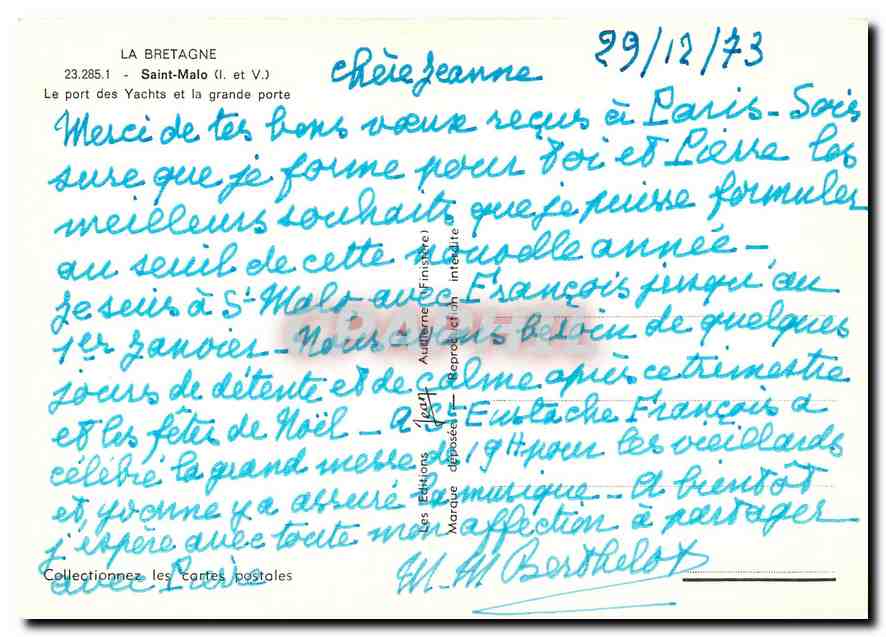 LA BRETAGNE
23.285.1 - Saint-Malo (I. et V.)
Le port des Yachts et la grande porte
29/12/73
chère Jeanne
Merci de tes bons vœux reçus à Paris - Sois
sure que je forme pour toi et Pierre les
meilleurs souhaits que je puisse formuler
au seuil de cette nouvelle année -
je suis à St Malo avec François jusqu'au
1er Janvier - Nous avons besoin de quelques
jours de détente et de calme après ce trimestre
et les fêtes de Noël - A St Eustache François a
célébré la grand messe de 19H pour les vieillards
et yvonne y a assuré la musique - A bientôt
j'espère avec toute mon affection à partager
avec Pierre
M. M Berthelot
Les Editions Jean Audierne (Finistère)
Marque déposée - Reproduction interdite
Collectionnez les cartes postales